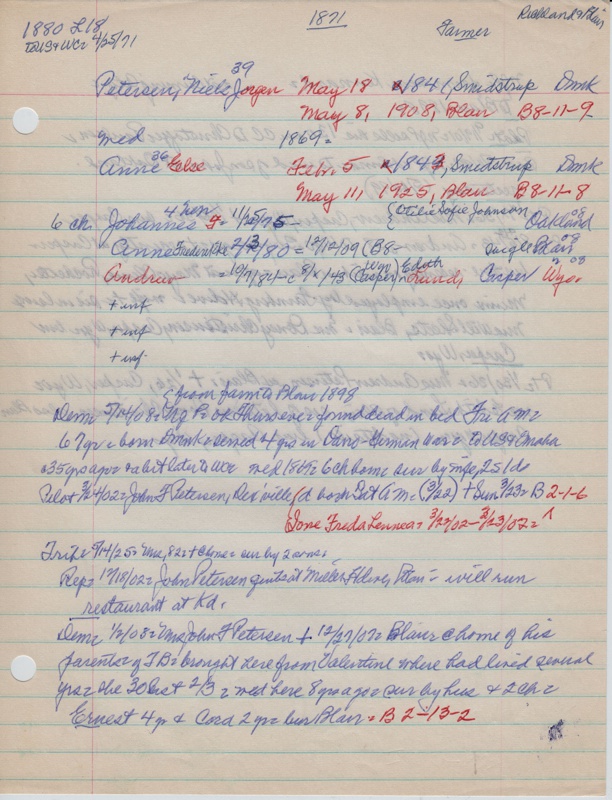 1871
Richland & Blair
1880 L18
Farmer
to US & WC 4/25/71
39
Petersen, Niels Jorgen May 18 1841, Smidstrup Dmk
May 8, 1908, Blair B8-11-9
med 1869 =
36
Anne Else Febr. 5 x1843, Smidstrup Dmk
May 11, 1925, Blair B8-11-8
6 ch. Johannes F = 11/25/75 {Otilie Sofie Johnson Oakland 08
Anne Frederikke 2/3/80 = 12/12/09 (B8- single Blair 08
Andrew = 10/7/84 - c 8/x/43 (Casper) Edith Lund, Casper Wyo
+ inf
+ inf
+ inf
{from farm to Blair 1898
Dem = 5/14/08 = Ng P. ok Thurs eve = found dead in bed Fri AM =
67 yr = born Dmnk = served 4 yrs in Dano-German War = to US & Omaha
35 yrs ago = a bit later to WC wed 1869 = 6 ch home sur by wife, 2s 1 da
Pilot 3/4/02 = John F Petersen, (d born Sat AM = (3/22) + Sun 3/23 = B 2-1-6
Ione Freda Lennea = 3/22/02 - 3/23/02 = ^
Trib = 5/14/25 = Mrs, 82 = + c home = sur by 2 sons =
Rep = 12/18/02 = John Petersen quits at = will run
restaurant at Kd.
Dem = 1/2/08 = Mrs John F Petersen + 12/27/07 = Blair c home of his
parents of TB = brought here from Valentine where had lived several
yrs = she 30 last 2/3 = wed here 8 yrs ago = sur by hus & 2 ch =
Ernest 4 yr & Cora 2 yr = bur Blair = B 2-13-2